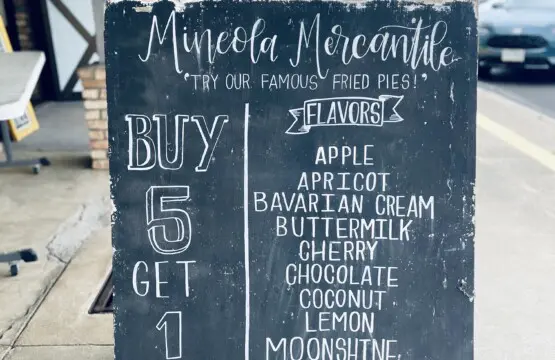 Mineola Mercantile
"TRY OUR FAMOUS FRIED PIES!"
BUY
5
GET
1
FLAVORS
APPLE
APRICOT
BAVARIAN CREAM
BUTTERMILK
CHERRY
CHOCOLATE
COCONUT
LEMON
MOONSHINE